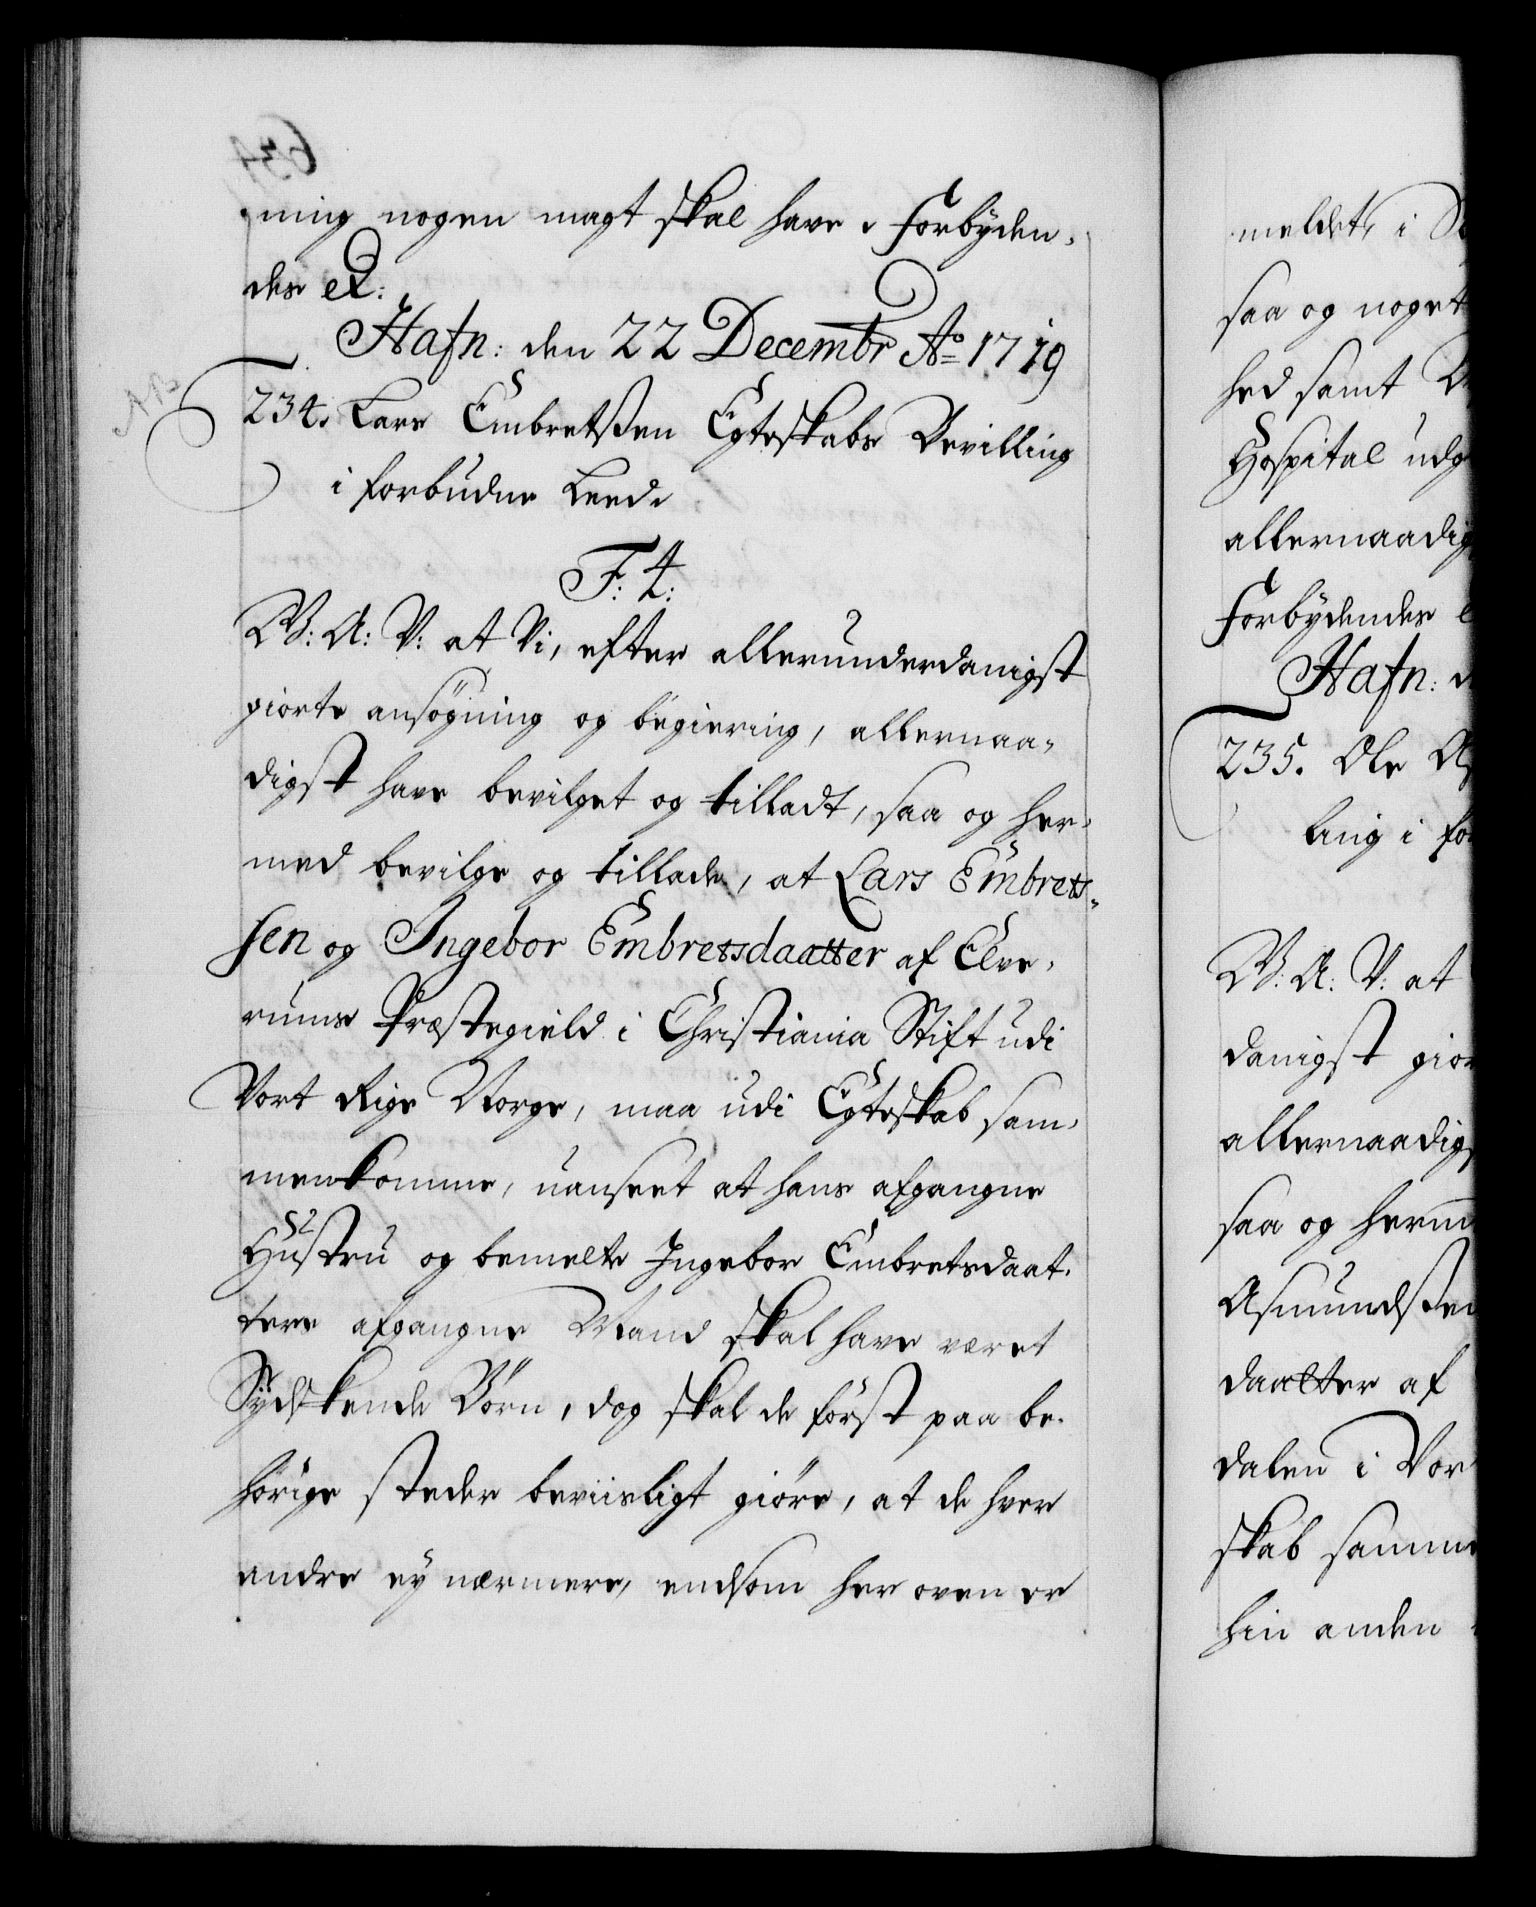 ning nogen magt skal have. Forbyden-
des etc:
Hafn: den 22 Decembr Ao 1719
234. Lars Embretssen Egteskabs Bevilling
i forbudne Leed.
F: 4:
W: A: V: at Vi, efter allerunderdanigst
giorte ansögning og begiering, allernaa-
digst have bevilget og tilladt, saa og her-
med bevilge og tillade, at Lars Embrets-
sen og Ingebor Embretsdaatter af Elve-
rums Præstegield i Christiania Stift udi
Vort Rige Norge, maa udi Egteskab sam-
menkomme, uanseet at hans afgangne
Hustru og bemelte Ingebor Embretsdaat-
ters afgangne Mand skal have været
Sydskende Börn, dog skal de först paa be-
hörige steder beviisligt giöre, at de hver
andre ey nærmere, endsom her oven er
meldet, i
saa og noget
hed samt
Hospital udg
allernaadig
Forbydendes
Hafn: d
235. Ole
ling i for
W: A: V: at
danigst gior
allernaadigs
saa og herm
Asmundssen
daatter af
dalen i Vor
skab samme
hin anden